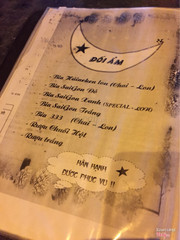 ĐỐI ẨM
- Bia Heineken lon (Chai - Lon)
- Bia SaiGon Đỏ
- Bia SaiGon Xanh (SPECIAL - LÙN)
- Bia SaiGon Trắng
- Bia 333 (Chai - Lon)
- Rượu Chuối Hột
- Rượu trắng
HÂN HẠNH
ĐƯỢC PHỤC VỤ !!